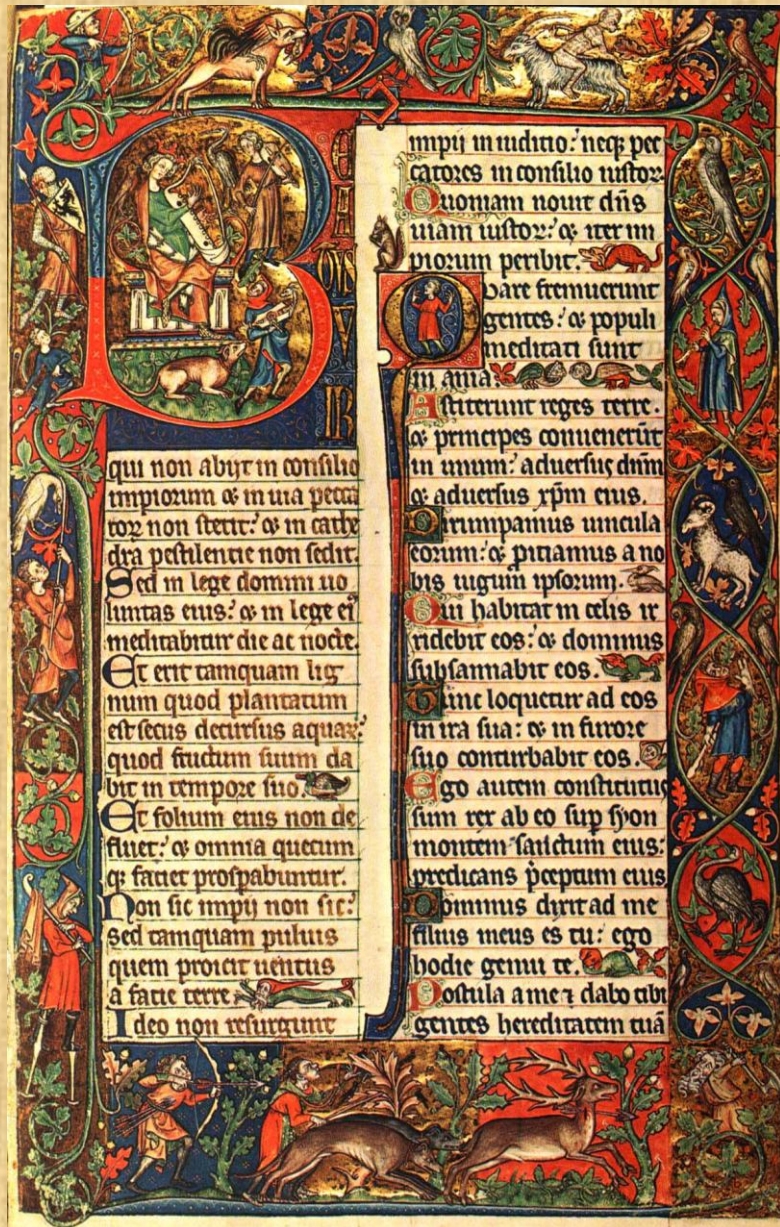 BEATVS VIR
qui non abijt in consilio
impiorum & in uia pecca
tor non stetit: & in cathe
dra pestilentie non sedit.
Sed in lege domini uo
luntas eius: & in lege ei
meditabitur die ac nocte.
Et erit tamquam lig
num quod plantatum
est secus decursus aquar:
quod fructum suum da
bit in tempore suo.
Et folium eius non de
fluet: & omnia quecum
q; faciet prospabuntur.
Non sic impij non sic:
sed tamquam puluis
quem proicit uentus
a facie terre
Ideo non resurgunt
impij in iuditio: neq; pec
catores in consilio iustor
Quoniam nouit dn̄s
uiam iustor: & iter im
piorum peribit.
Quare fremuerunt
gentes: & populi
meditati sunt
in ania.
Astiterunt reges terre.
& principes conuenerūt
in unum: aduersus dn̄m
& aduersus xp̄m eius.
Dirumpamus uincula
eorum: & piciamus a no
bis iugum ipsorum.
Qui habitat in celis ir
ridebit eos: & dominus
subsannabit eos.
Tunc loquetur ad eos
in ira sua: & in furore
suo conturbabit eos.
Ego autem constitutus
sum rex ab eo sup syon
montem sanctum eius:
predicans p̄ceptum eius
Dominus dixit ad me
filius meus es tu: ego
hodie genui te.
Postula a me ⁊ dabo tibi
gentes hereditatem tuā